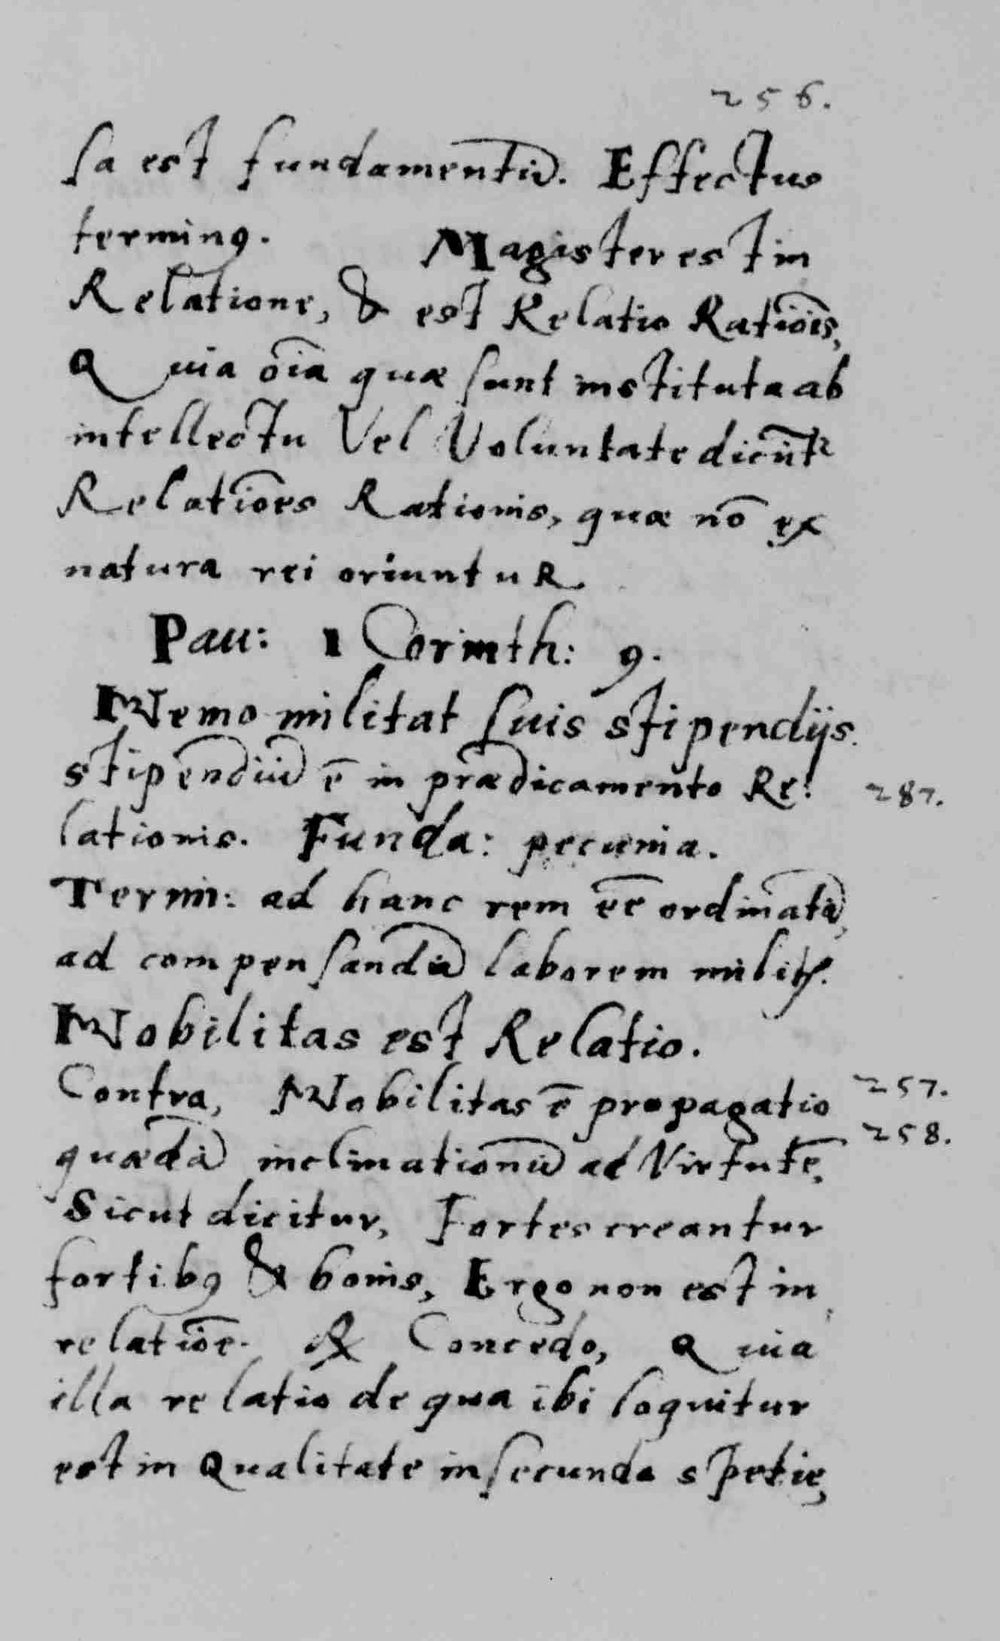 256.
sa est fundamentū. Effectus
terminꝰ. Magister est in
Relatione, & est Relatio Ratiōis,
Quia oīa quæ sunt instituta ab
intellectu Vel Voluntate dicūtr
Relatiōes Rationis, quæ nō ex
natura rei oriuntuR
Pau: 1 Corinth: 9.
Nemo militat suis stipendijs.
stipendiū ē in prædicamento Re:
287.
lationis. Funda: pecunia.
Termi: ad hanc rem eē ordinatā,
ad compensandū laborem militis.
Nobilitas est Relatio.
Contra, Nobilitas ē propagatio
257.
258.
quædā inclinationū ad Virtutē,
Sicut dicitur, Fortes creantur
fortibꝰ & bonis, Ergo non est in
relatiōe. ℞ Concedo, Quia
illa relatio de qua ibi loquitur
est in Qualitate in secunda spetie,